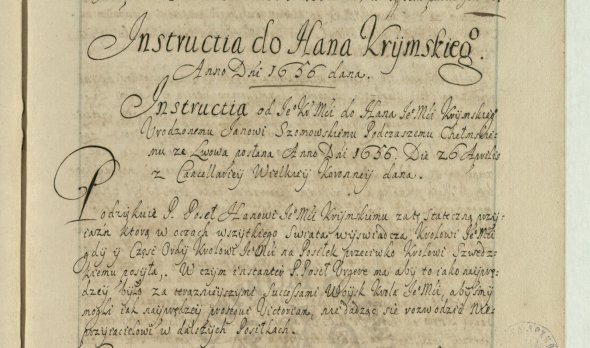 Instructia do Hana Krijmskiego.
Anno Dni 1656 dana.
Instructia od Jeo Kr Mći do Hana Jeo Mći Krijmskieo
Urodzonemu Janowi Szomowskiemu Podczaszemu Chełmskie-
mu ze Lwowa posłana Anno Dni 1656. Die 26 Aprilis
z Cancellariey Wielkiey Koronney dana.
Podziękuie P. Poseł Hanowi Jeo Mći Krijmskiemu za tę stateczną przy-
iazń ktorą w oczach wszystkiego Swiata wyswiadcza Krolowi Jeo Mći
gdy y Częsc Ordy Krolowi Jeo Mći na Posiłek przeciwko Krolowi Szwedz-
kiemu posyła. W czym instanter P. Poseł Urgere ma aby to iako nayprę-
dzey było za teraznieyszymi Successami Woysk Krola Jeo Mći, abysmy
mogli iak nayprędzey prosequi Victoriam, nie daiąc się rozwodzić Nie-
przyiacielowi w dalszych Posiłkach.